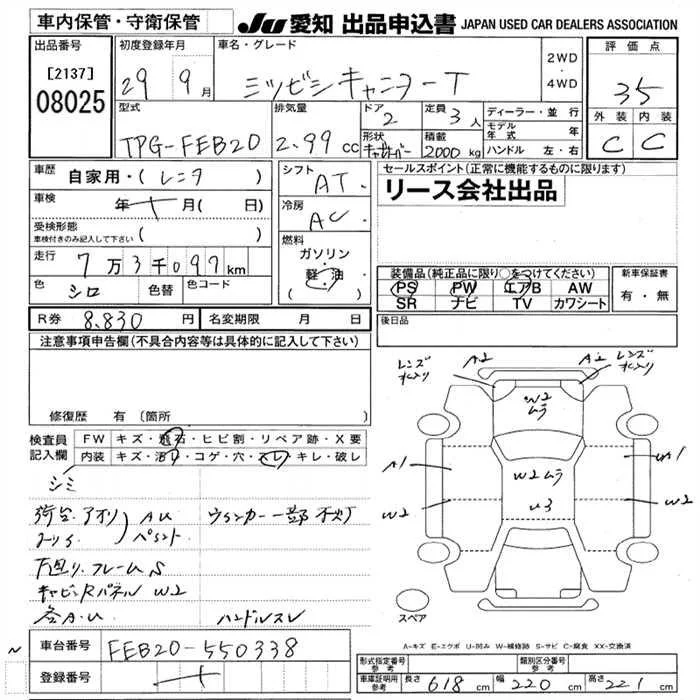 車内保管・守衛保管 JU 愛知 出品申込書 JAPAN USED CAR DEALERS ASSOCIATION
出品番号 初度登録年月 車名・グレード 2WD ・ 4WD 評価点
[2137] 29 9月 ミツビシ キャンター T 35
08025
型式 排気量 ドア 定員 ディーラー・並行 外装 内装
TPG-FEB20 2.99cc 2 3人 モデル年式 年 C C
形状 積載 2000kg ハンドル 左・右
車歴 自家用・(レンタ) シフト AT. セールスポイント(正常に機能するものに限ります)
車検 年 月(日) 冷房 AC. リース会社出品
受検形態 ( )
車検付きのみ記入して下さい
燃料 ガソリン・軽・油 ( )
走行 7万3千097km
装備品(純正品に限り○をつけてください) 新車保証書
色 シロ 色替 色コード PS PW エアB AW 有・無
SR ナビ TV カワシート
R券 8,830円 名変期限 月 日 後日品
注意事項申告欄(不具合内容等は具体的に記入して下さい)
レンズ A2 A2 レンズ
W2 ムラ
修復歴 有 (箇所
検査員記入欄 FW キズ・飛石・ヒビ割・リペア跡・X要
内装 キズ・汚れ・コゲ・穴・スレ・キレ・破レ
A1 W2ムラ A1
シミ
W2 U3 W2
荷台.アオリ AU ウィンカー一部不灯
下廻り.フレームS
キャビンRパネル W2
各A.U ハンドルスレ
スペア
A-キズ E-エクボ U-凹み W-補修跡 S-サビ C-腐食 XX-交換済
車台番号 FEB20-550338
登録番号
形式指定番号 参考 類別区分番号 参考
車庫証明用 参考 長さ 618cm 幅 220cm 高さ 221cm